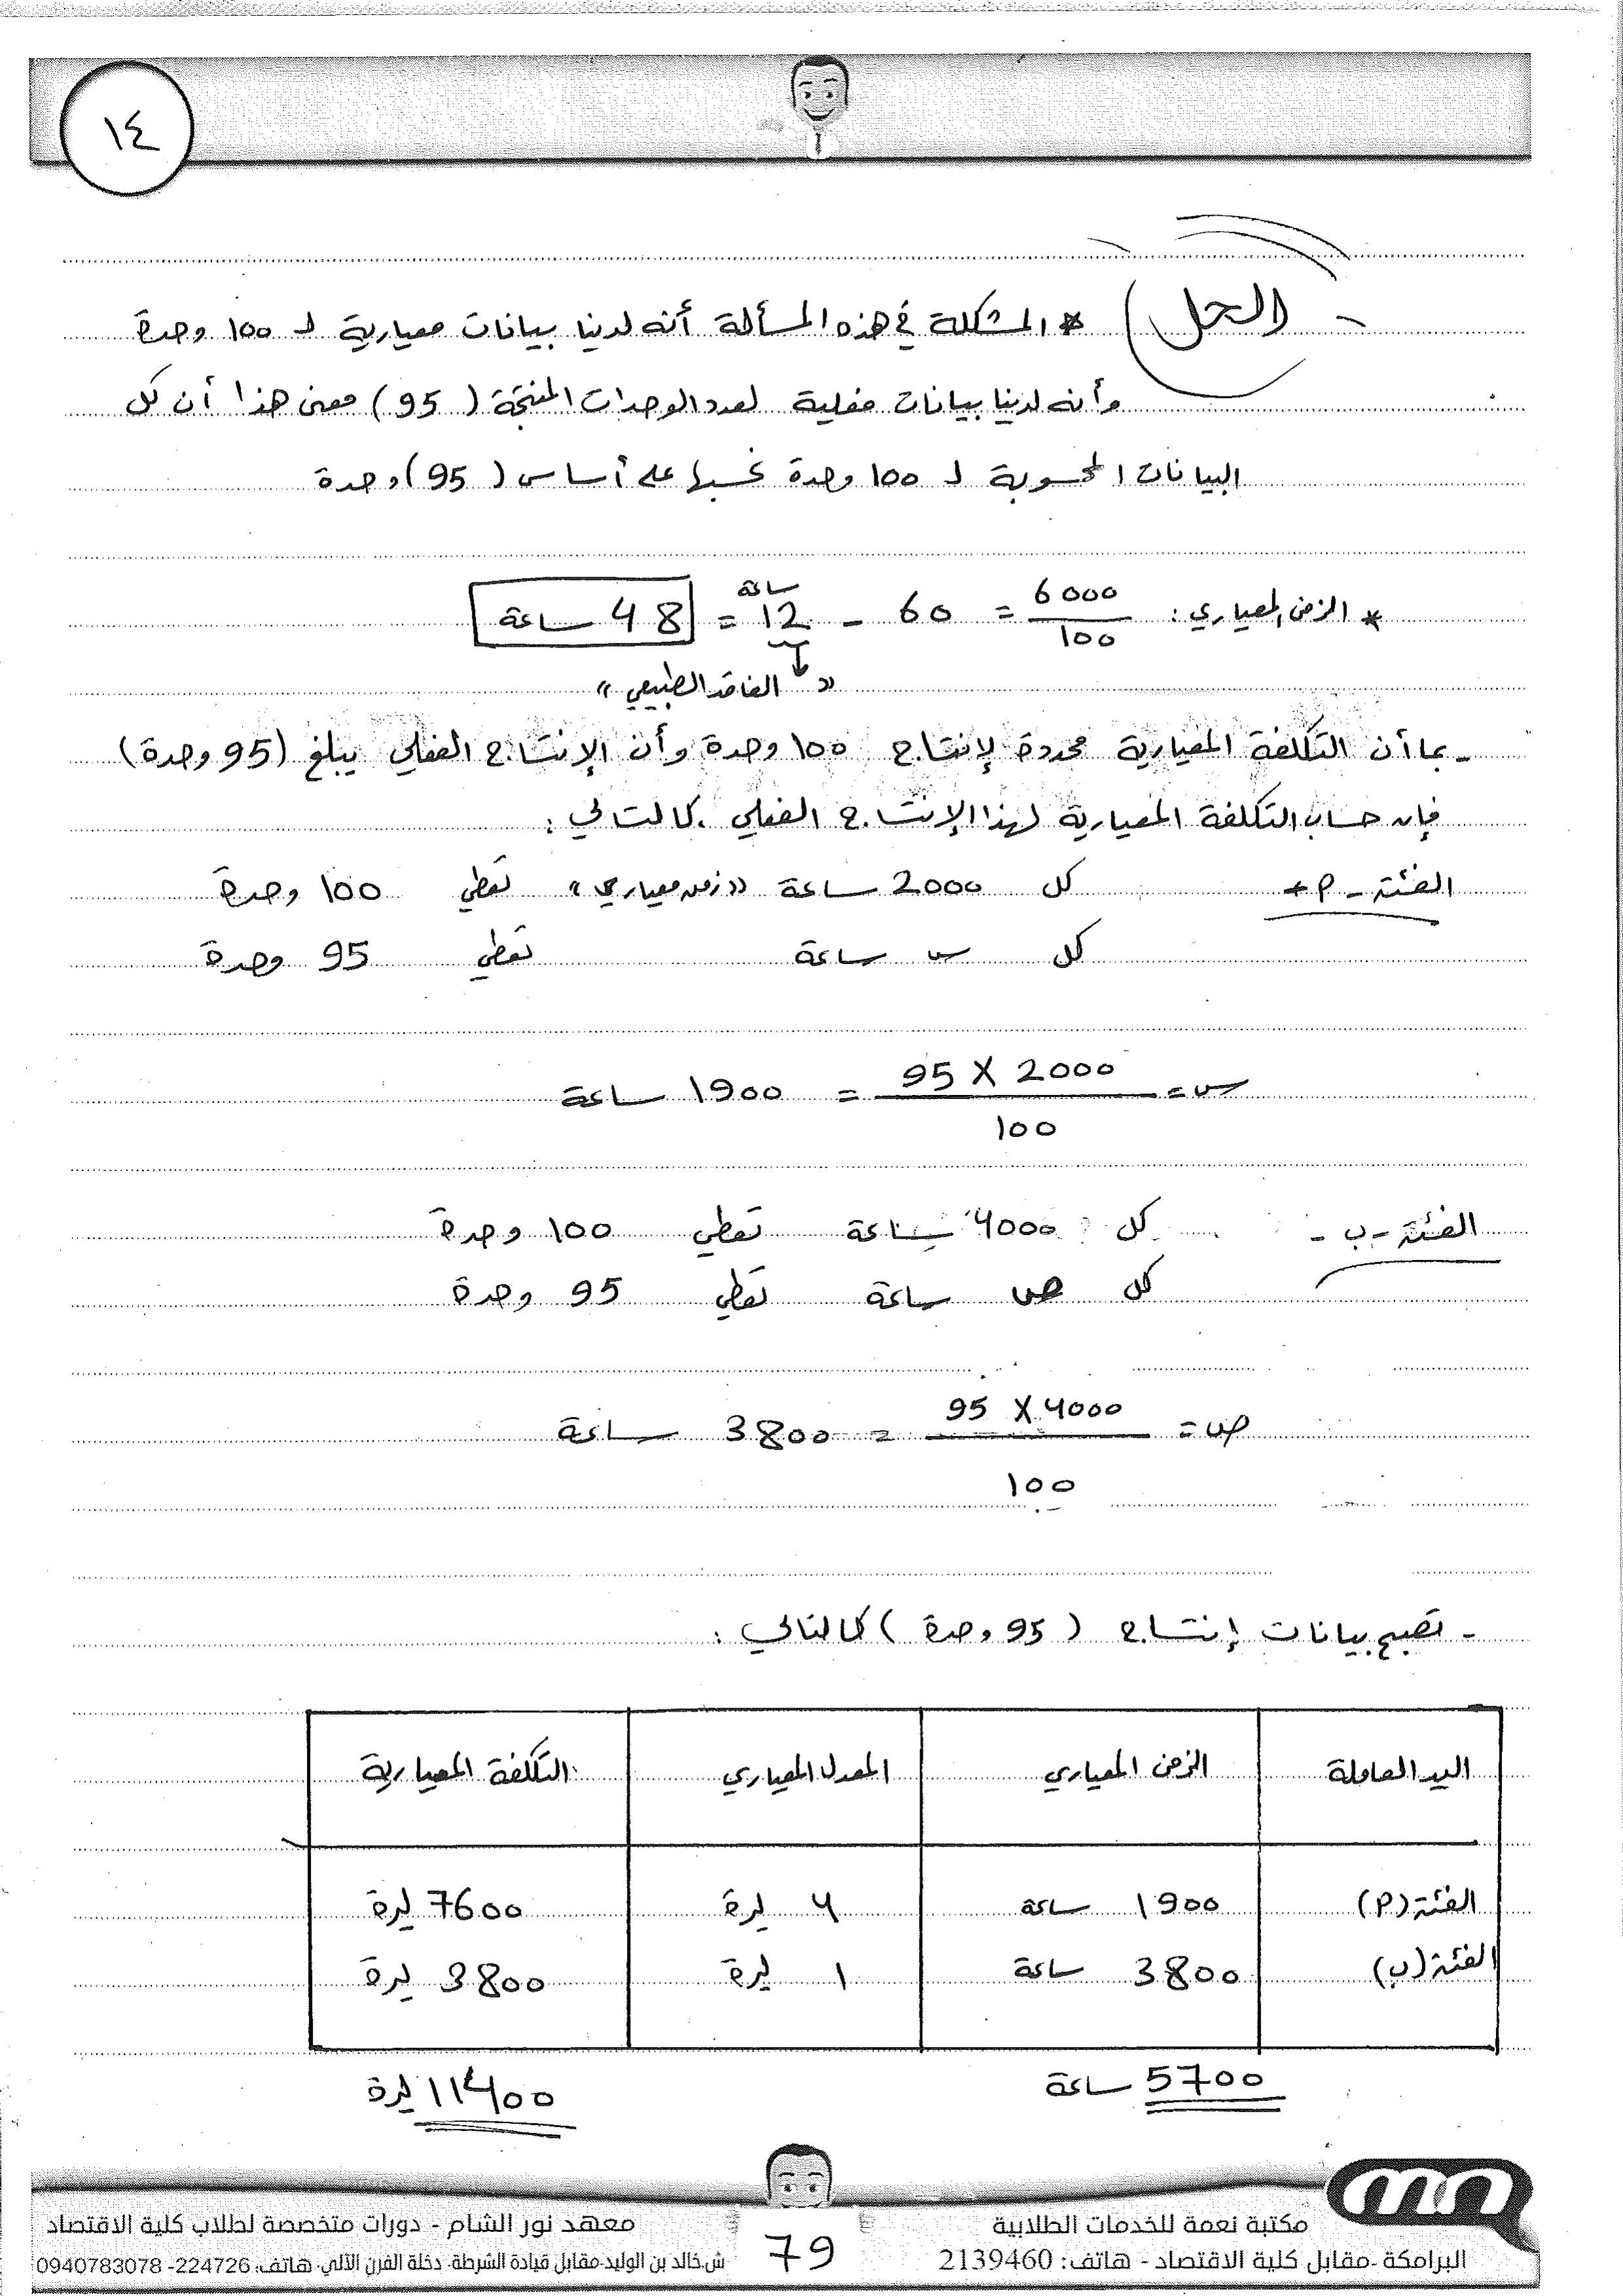 ١٤
- الحل) * المشكلة في هذه المسألة أنه لدينا بيانات معيارية لـ 100 وحدة
وأنه لدينا بيانات فعلية لعدد الوحدات المنتجة (95) معنى هذا أن كل
البيانات المحسوبة لـ 100 وحدة نحسبها على أساس (95) وحدة
* الزمن المعياري: 6000 / 100 = 60 - 12 ساعة = 48 ساعة
« الفاقد الطبيعي »
- بما أن التكلفة المعيارية محددة لإنتاج 100 وحدة وأن الإنتاج الفعلي يبلغ (95 وحدة)
فإن حساب التكلفة المعيارية لهذا الإنتاج الفعلي كالتالي:
الفئة - أ - كل 2000 ساعة «زمن معياري» تعطي 100 وحدة
كل س ساعة تعطي 95 وحدة
س = 95 X 2000 / 100 = 1900 ساعة
الفئة - ب - كل 4000 ساعة تعطي 100 وحدة
كل ص ساعة تعطي 95 وحدة
ص = 95 X 4000 / 100 = 3800 ساعة
- تصبح بيانات إنتاج (95 وحدة) كالتالي:
اليد العاملة الزمن المعياري المعدل المعياري التكلفة المعيارية
الفئة (أ) 1900 ساعة 4 ليرة 7600 ليرة
الفئة (ب) 3800 ساعة 1 ليرة 3800 ليرة
5700 ساعة 11400 ليرة
مكتبة نعمة للخدمات الطلابية
البرامكة -مقابل كلية الاقتصاد - هاتف: 2139460
79
معهد نور الشام - دورات متخصصة لطلاب كلية الاقتصاد
ش.خالد بن الوليد-مقابل قيادة الشرطة- دخلة الفرن الآلي- هاتف: 224726- 0940783078